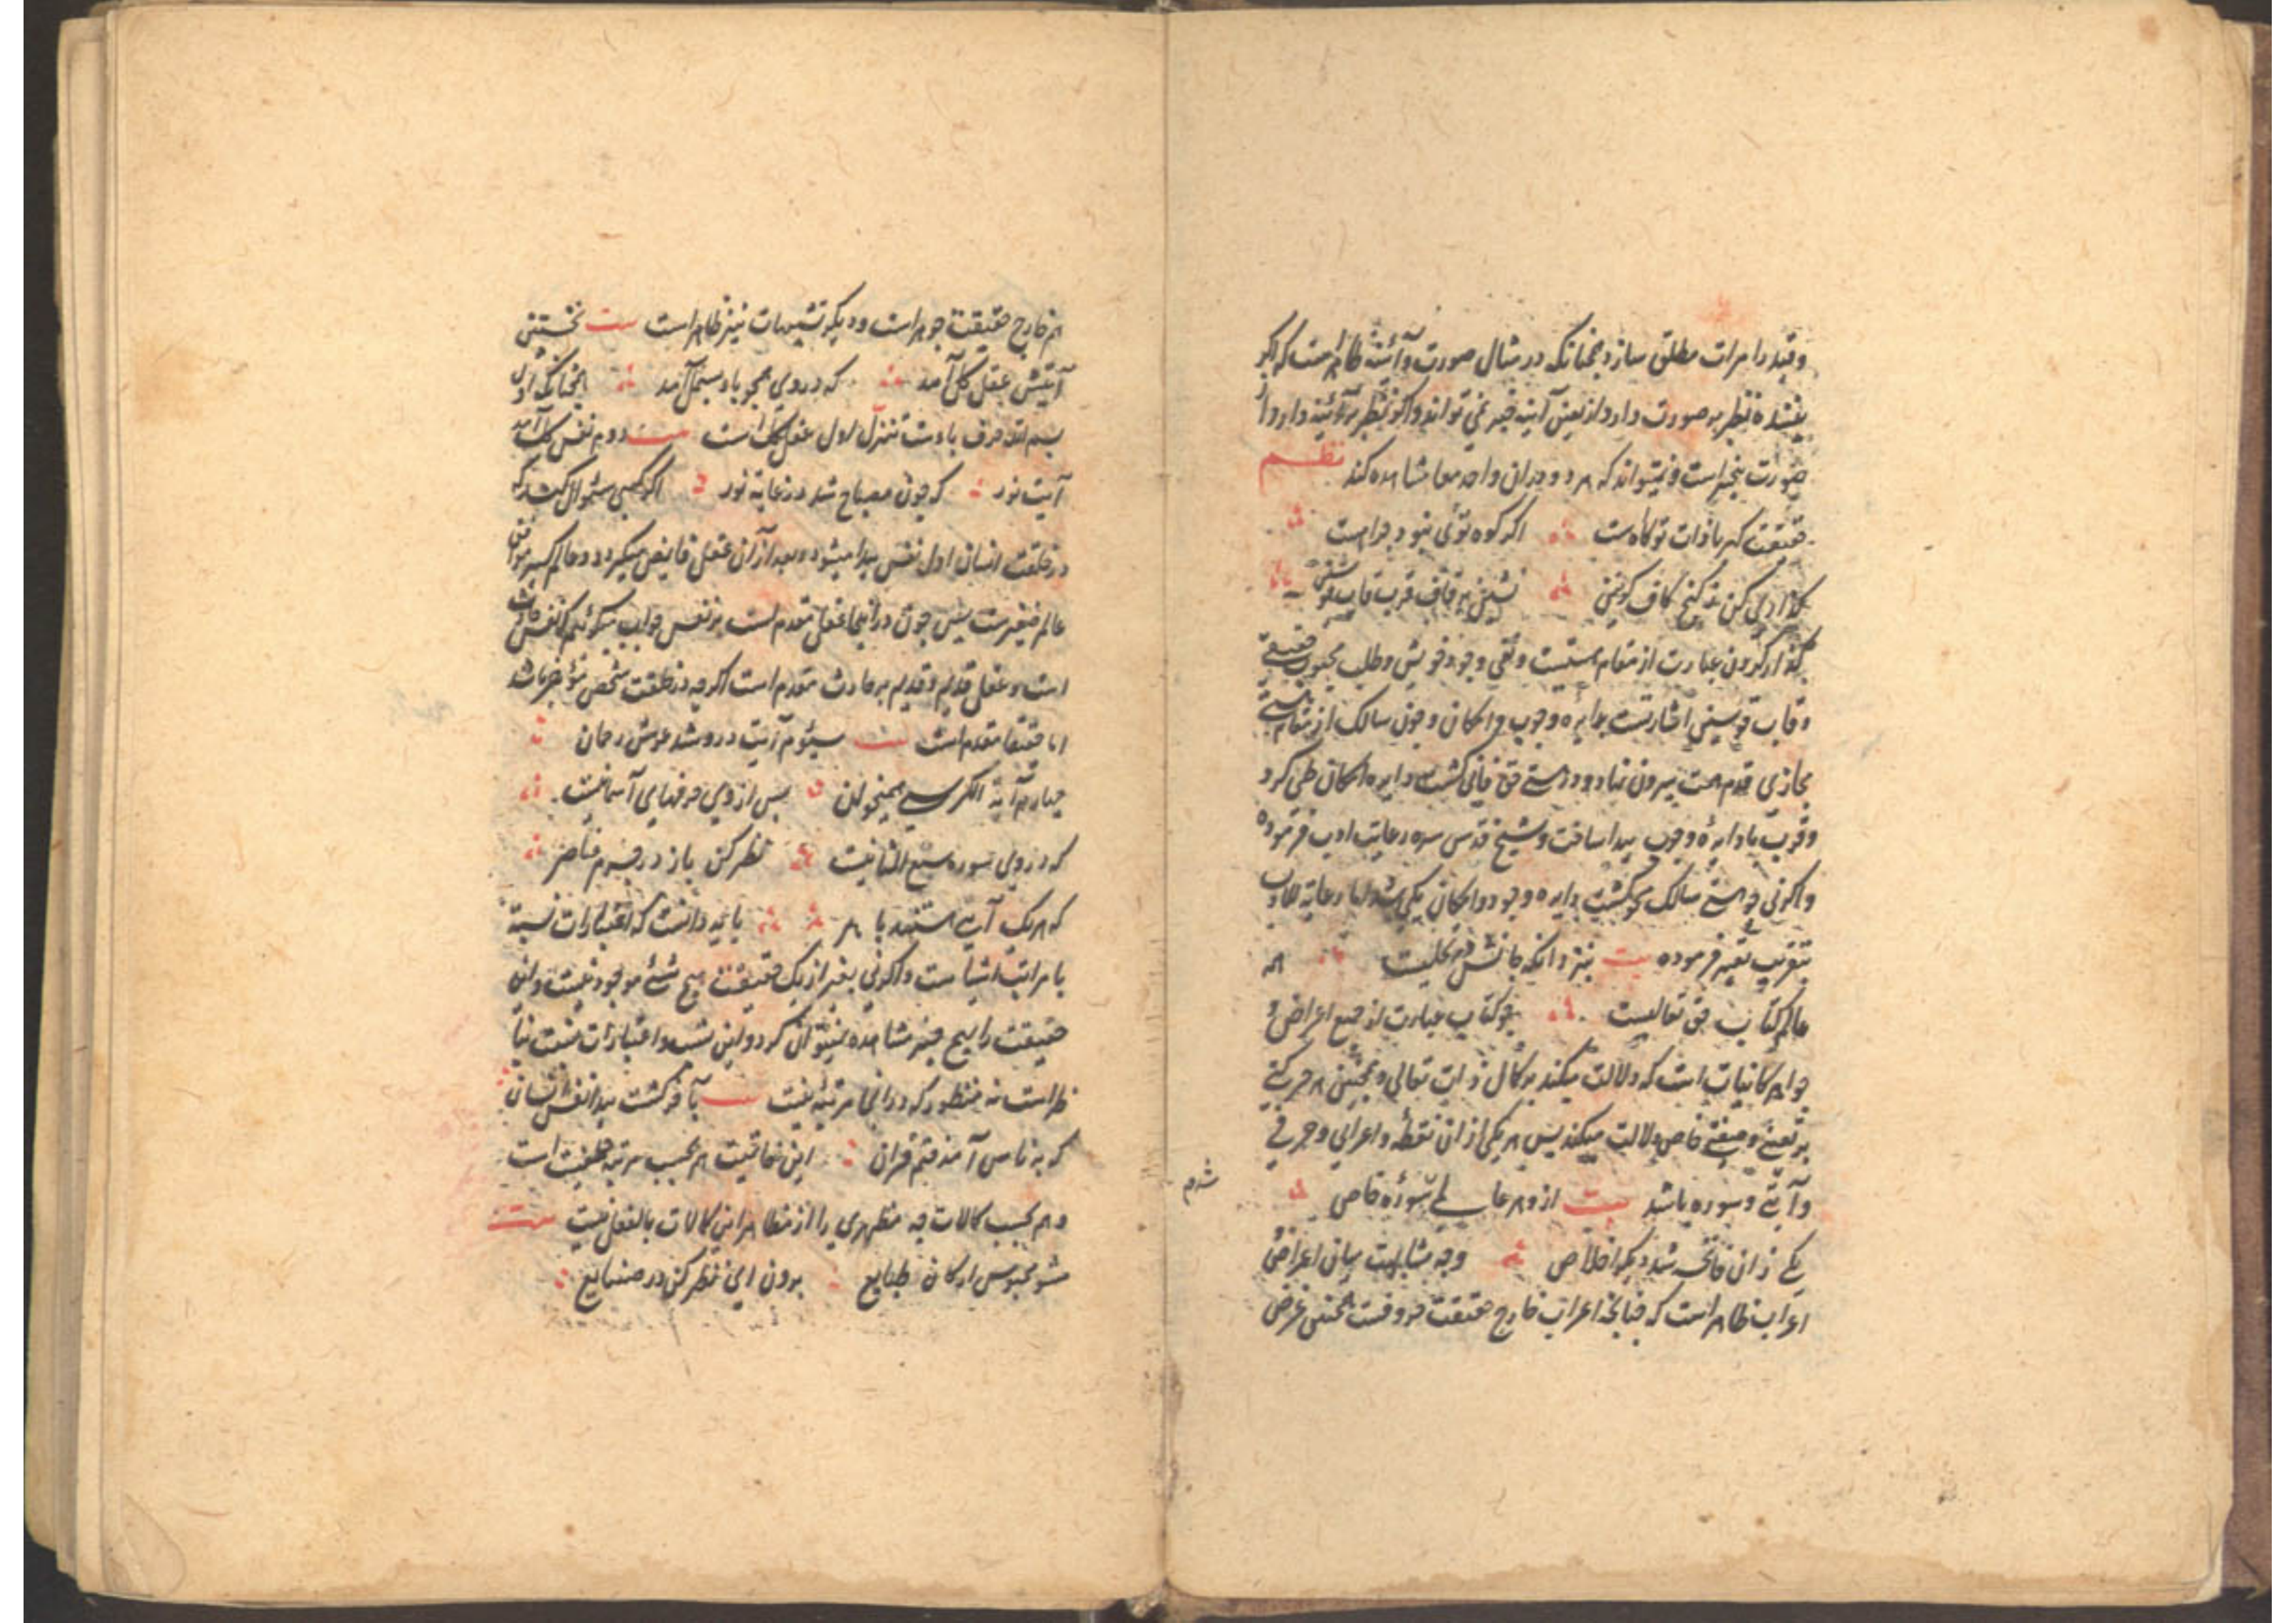 وقید را مرات مطلق سازد همچنانکه در مثال صورت و آئینه ظاهر است که اگر
بیننده نظر بر صورت دارد از تعین آینه خبر نمی تواند و اگر نظر بر آئینه دارد از
صورت بیخبر است و نمیتواند که هر دو در آن واحد معا مشاهده کند نظم
حقیقت کهربا ذات تو کاهست اگر کوه توئی نبود چه راهست
گذاری کن ز کنج کاف کونین نشین بر قاف قرب قاب قوسین
گذار کردن عبارت از مقام هستیست و نفی وجود خویش و طلب محبوب حقیقی
و قاب قوسین اشارتست بدایره وجوب و امکان و چون سالک از مقام هستی
مجازی قدم همت بیرون نهاد و در هستی حق فانی گشت دایره امکان طی کرد
و قرب با دایره وجوب پیدا ساخت و شیخ قدس سره رعایت ادب فرموده
واگرنی چو هستی سالک محو گشت دایره وجود و امکان یکی شد اما رعایة للادب
بتقریب تعبیر فرموده بیت بنزد آنکه جانش در تجلیست همه
عالم کتاب حق تعالیست چو کتاب عبارت از جمیع اعراض و
جواهر کاینات است که دلالت میکند بر کمال ذات تعالی و همچنین هر حرکتی
بر تعین و صفتی خاص دلالت میکند پس هر یکی از آن نقطه و اعرابی و حرفی
و آیتی و سوره باشد بیت ازو هر عالمی سوره خاص
یکی زان فاتحه شد دیگر اخلاص وجه مشابهت میان اعراض و
اعراب ظاهر است که چنانچه اعراب خارج حقیقت حروفست همچنین عرض
شدم
هم خارج حقیقت جوهر است و دیگر تشبیهات نیز ظاهر است بیت نخستین
آیتش عقل کل آمد که در وی همچو باء بسمل آمد همچنانکه اول
بسم الله حرف باءست تنزل اول عقل کل است بیت دوم نفس کل آمد
آیت نور که چون مصباح شد در غایة نور اگر کسی سئوال کند که
در خلقت انسان اول نفس پیدا میشود و بعد از آن عقل فایض میگردد و عالم کبیر موافق
عالم صغیرست پس چون در آنجا عقل مقدم است بر نفس جواب میگوئیم که نفس حادث
است و عقل قدیم و قدیم بر حادث مقدم است اگرچه در خلقت شخص مؤخر باشد
اما حقیقتا مقدم است بیت سیئوم آیت درو شد عرش رحمان
چهارم آیة الکرسی همیخوان پس از وی جرمهای آسمانیست
که در وی سوره سبع المثانیست نظر کن باز در جرم عناصر
که هر یک آیتی هستند باهر باید دانست که اعتبارات نسبة
با مراتب اشیاست واگرنی بغیر از یک حقیقت هیچ شئی موجود نیست و آن
حقیقت را بهیچ چیز مشاهده نمیتوان کرد و این نسب و اعتبارات نسبت بنا
ظر است نه منظور که در آنجا مرتبه نیست بیت بآخر گشت پیدا نفس انسان
که بر ناس آمد ختم قرآن این خاتمیت هم بحسب مرتبه خلقیت است
و هم بحسب کمالات چه مظهری را از مظاهر این کمالات بالفعل نیست بیت
مشو محبوس ارکان و طبایع برون آی نظر کن در صنایع